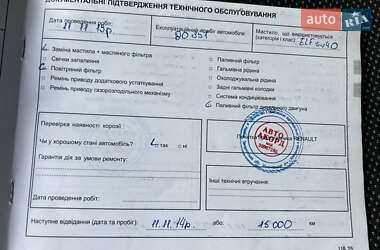 AUTO.RIA
ДОКУМЕНТАЛЬНІ ПІДТВЕРДЖЕННЯ ТЕХНІЧНОГО ОБСЛУГОВУВАННЯ
Дата проведення робіт: 11.11.13р.
Експлуатаційний пробіг автомобіля:
Мастило, що використовується
(категорія і клас): ELF 5w40
Заміна мастила + масляного фільтра
Свічки запалення
Повітряний фільтр
Ремінь приводу додаткового устаткування
Ремінь приводу газорозподільного механізму
Паливний фільтр
Гальмівна рідина
Охолоджувальна рідина
Задні гальмівні колодки
Система кондиціювання
Паливний фільтр двигуна
Перевірка наявності корозії
Чи у хорошому стані автомобіль? так ні
Гарантія діє за умови ремонту:
АВТО
АКОРД
RENAULT
Дата проведення робіт:
Інші технічні втручання:
Наступне відвідання (дата та пробіг) 11.11.14р. або 15000 км